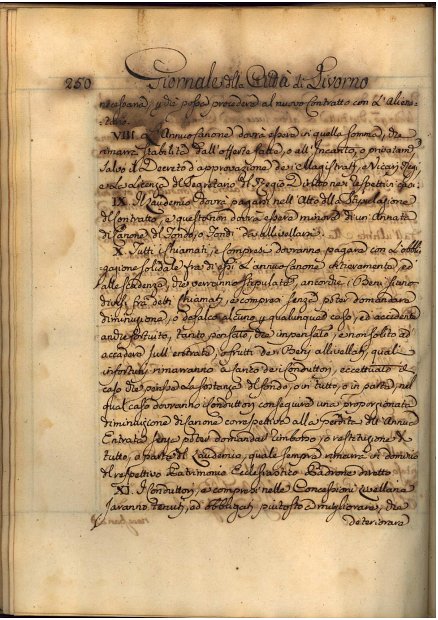 250 Giornale della Città di Livorno
necessaria, p[er]che possa procedere al nuovo Contratto con L'Alien=
=tario.
VIII. L'Annuo Canone dovrà essere di quella somma, che
rimarrà stabilita dall'offerte fatte, o all'Incanto, o privatam.
salvo il Decreto d'approvazione dei Magistrati, e Vicari Regi
e la licenza del Segretario del Regio Diritto nei respettivi casi.
IX. Il Laudemio dovrà pagarsi nell'Atto della Stipulazione
del Contratto, e questo non dovrà essere minore di un'Annata
di Canone del Fondo, o Fondi da allivellarsi.
X. Tutti i Chiamati, e compresi dovranno pagare con L'obbli
gazione solidale fra di essi L'annuo Canone interamente, ed
alle scadenze, che verranno stipulate, ancorchè i Beni siano
divisi fra detti Chiamati, e compresi senza poter domandare
diminuzione, o defalco alcuno p qualunque caso, ed accidente
anche fortuito, tanto pensato, che inpensato, e non solito ad
accadere sull'entrate, o frutti dei Beni allivellati, quali
infortuni rimarranno a Carico dei Conduttori, eccettuato il
caso che perisse la sostanza del fondo, o in tutto, o in parte, nel
qual caso dovranno i Conduttori conseguire una proporzionata
diminuzione di Canone correspettiva alla perdita dell'Annue
Entrate senza poter domandar rimborso, o restituzione p
tutto, o parte del Laudemio, quale sempre rimarrà in dominio
del respettivo Patrimonio Ecclesiastico Padrone diretto.
XI. I Conduttori, e compresi nelle Concessioni livellarie
saranno tenuti, ed obbligati piuttosto a migliorare, che
deteriorare